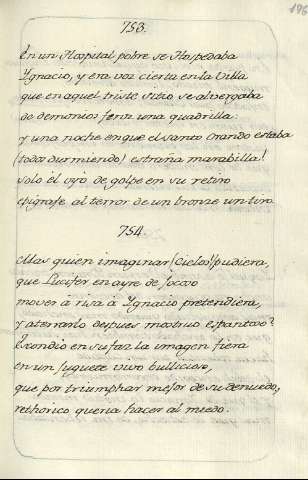 196
753.
En un Hospital pobre se Hospedaba
Ygnacio, y era voz cierta en la Villa
que en aquel triste sitio se alvergaba
de demonios feroz una quadrilla:
y una noche en que el Santo Orando estaba
(todos durmiendo) estraña marabilla!
solo el oyó de golpe en su retiro
epigrafe al terror de un bronze un tiro.
754.
Mas quien imaginar (Cielos!) pudiera,
que Lucifer en ayre de jocoso
mover à risa à Ygnacio pretendiera,
y aterrarlo despues mostruo espantoso?
Escondio en su faz la imagen fiera
en un juguete vivo bullicioso,
que por triumphar mejor de su denuedo,
rethorico queria hacer al miedo.